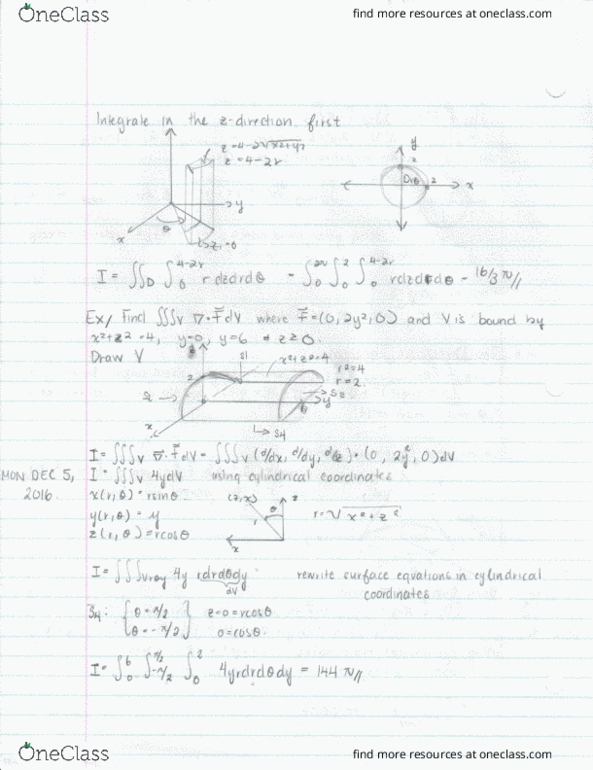 OneClass
find more resources at oneclass.com
Integrate in the z-direction first
z=4-2√x²+y²
z=4-2r
y
x
θ
z=0
y
2
2
x
I = ∫∫D ∫₀^4-2r r dzdrdθ = ∫₀^2π ∫₀^2 ∫₀^4-2r rdzdrdθ = 16/3 π//
Ex/ Find ∫∫∫V ∇·F dV where F=(0, 2y², 0) and V is bound by
x²+z²=4, y=0, y=6 & z≥0
Draw V
S1
x²+z²=4
r²=4
r=2
S2
y
x
S4
I = ∫∫∫V ∇·F dV = ∫∫∫V (d/dx, d/dy, d/dz)·(0, 2y², 0)dV
MON DEC 5,
2016
I = ∫∫∫V 4ydV using cylindrical coordinates
x(r,θ)=rsinθ
y(r,θ)=y
z(r,θ)=rcosθ
(z,x)
z
θ
r
x
r=√x²+z²
I = ∫∫∫Vrθy 4y rdrdθdy
dV
rewrite surface equations in cylindrical
coordinates
S4: {θ=π/2 z=0=rcosθ
{θ=-π/2} 0=cosθ
I = ∫₀^6 ∫-π/2^π/2 ∫₀^2 4yrdrdθdy = 144π//
OneClass
find more resources at oneclass.com